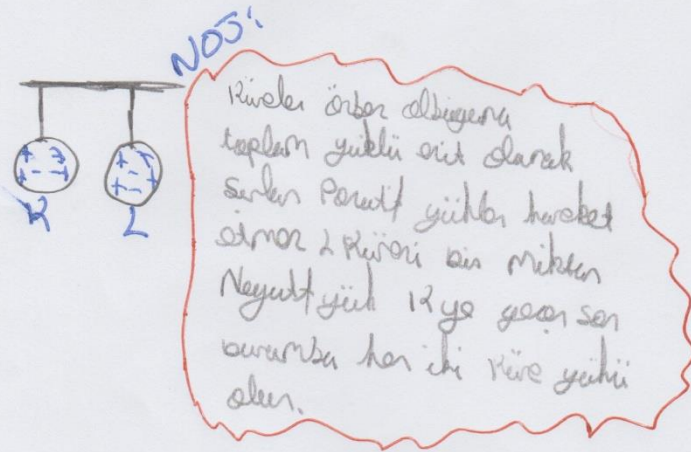 NOT:
Küreler özdeş olduğuna
toplam yüklü eşit olarak
Pozitif yükler hareket
etmez L Küresi bir miktar
Negatif yük K ye geçer son
durumda her iki Küre yüklü
olur.
K
L